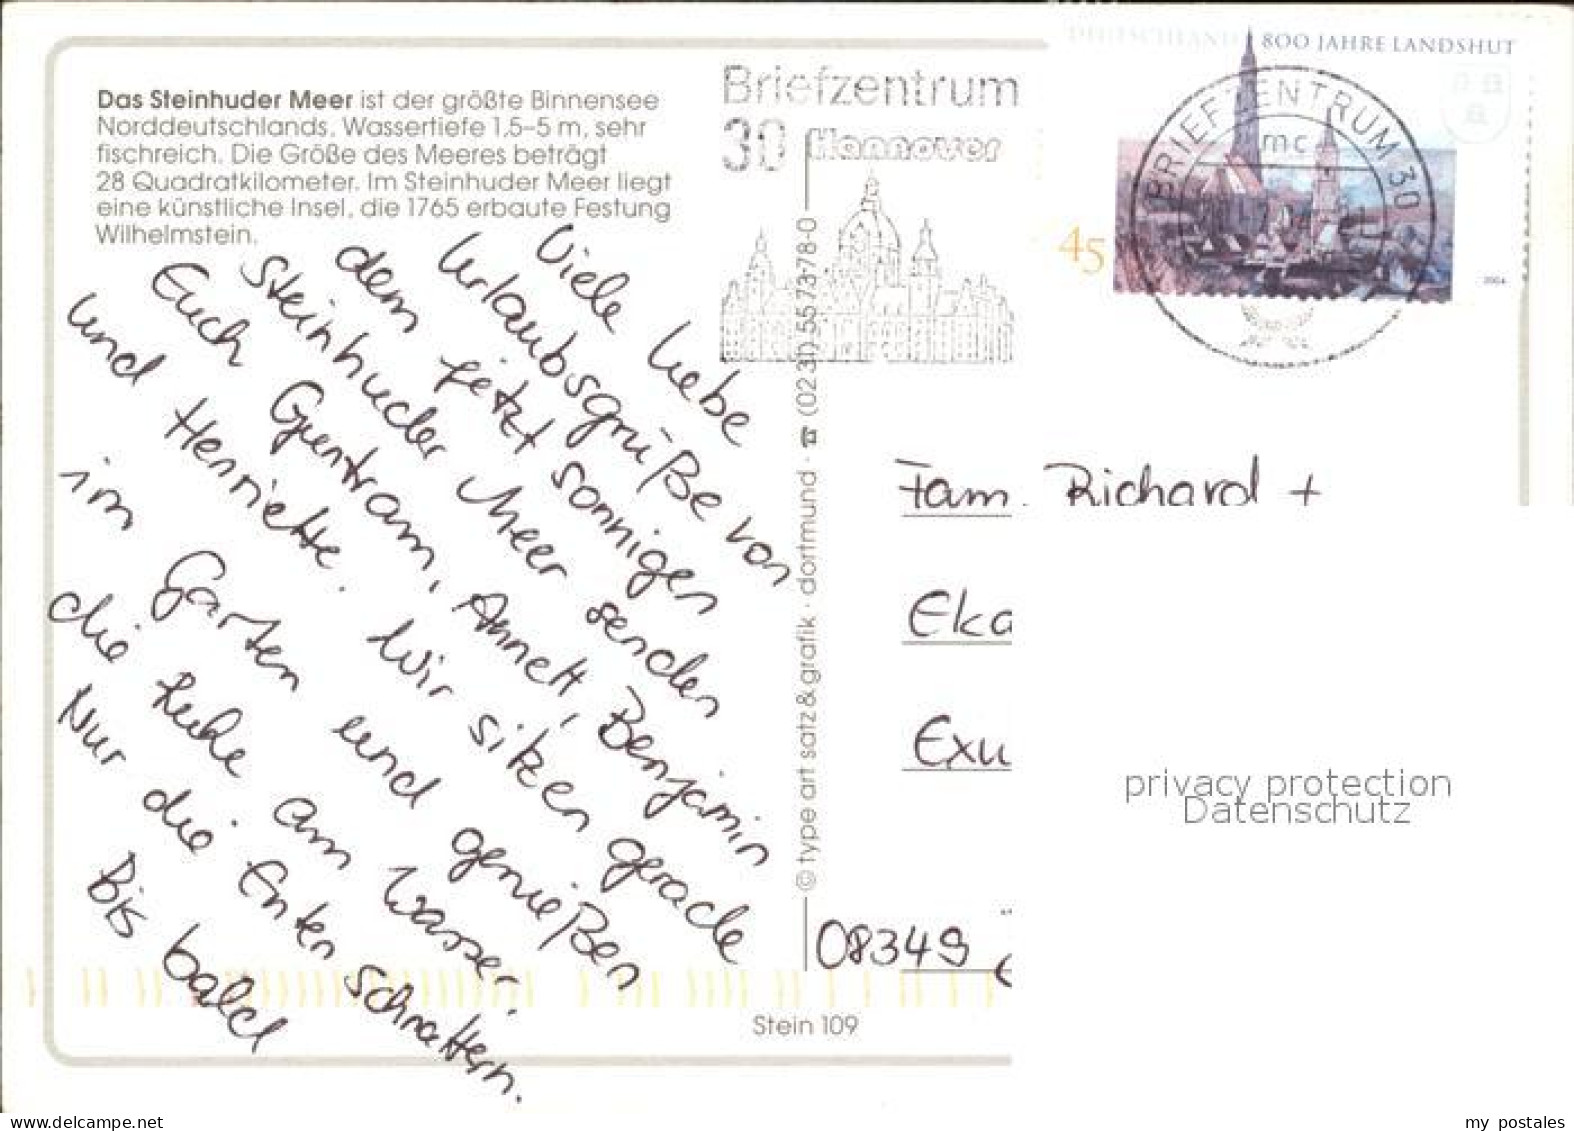 Das Steinhuder Meer ist der größte Binnensee
Norddeutschlands. Wassertiefe 1,5–5 m, sehr
fischreich. Die Größe des Meeres beträgt
28 Quadratkilometer. Im Steinhuder Meer liegt
eine künstliche Insel, die 1765 erbaute Festung
Wilhelmstein.
Viele liebe
Urlaubsgrüße von
dem jetzt sonnigen
Steinhuder Meer senden
Euch Guntram, Annett, Benjamin
und Henriette. Wir sitzen gerade
im Garten und genießen
die Ruhe am Wasser.
Nur die Enten schnattern.
Bis bald
Briefzentrum
30
Hannover
© type art satz & grafik · dortmund · ☎ (0231) 557378-0
Stein 109
DEUTSCHLAND 800 JAHRE LANDSHUT
45
2004
BRIEFZENTRUM 30
mc
Fam. Richard +
Eka
Exu
08349
privacy protection
Datenschutz
www.delcampe.net
my postales